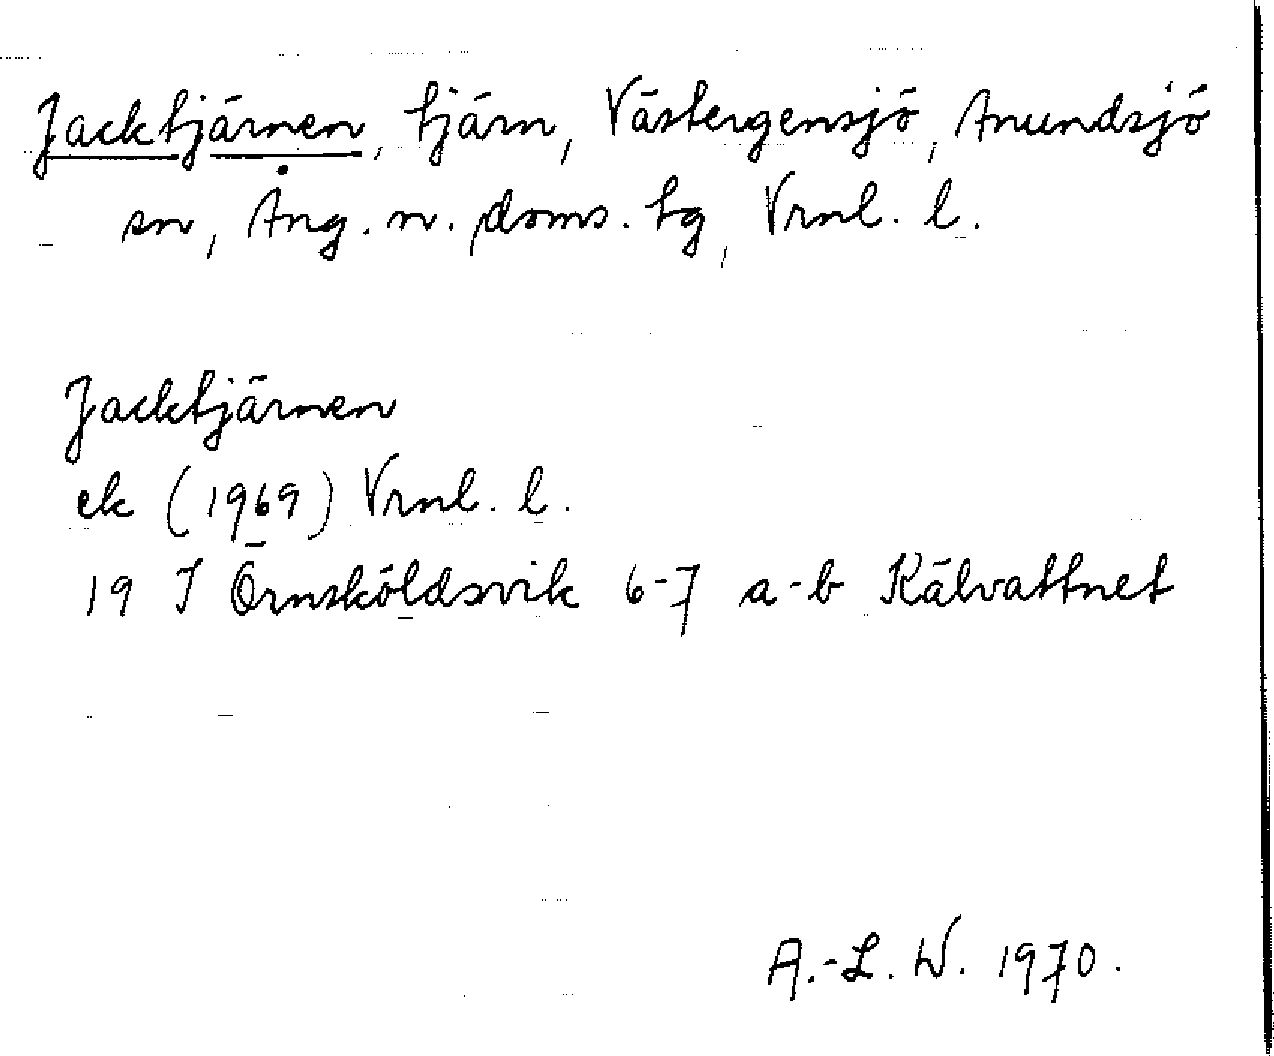 Jacktjärnen, tjärn, Västergensjö, Anundsjö
sn, Ång. n. doms. tg, Vrnl. l.
Jacktjärnen
ek (1969) Vrnl. l.
19 I Örnsköldsvik 6-7 a-b Kälvattnet
A.-L. W. 1970.